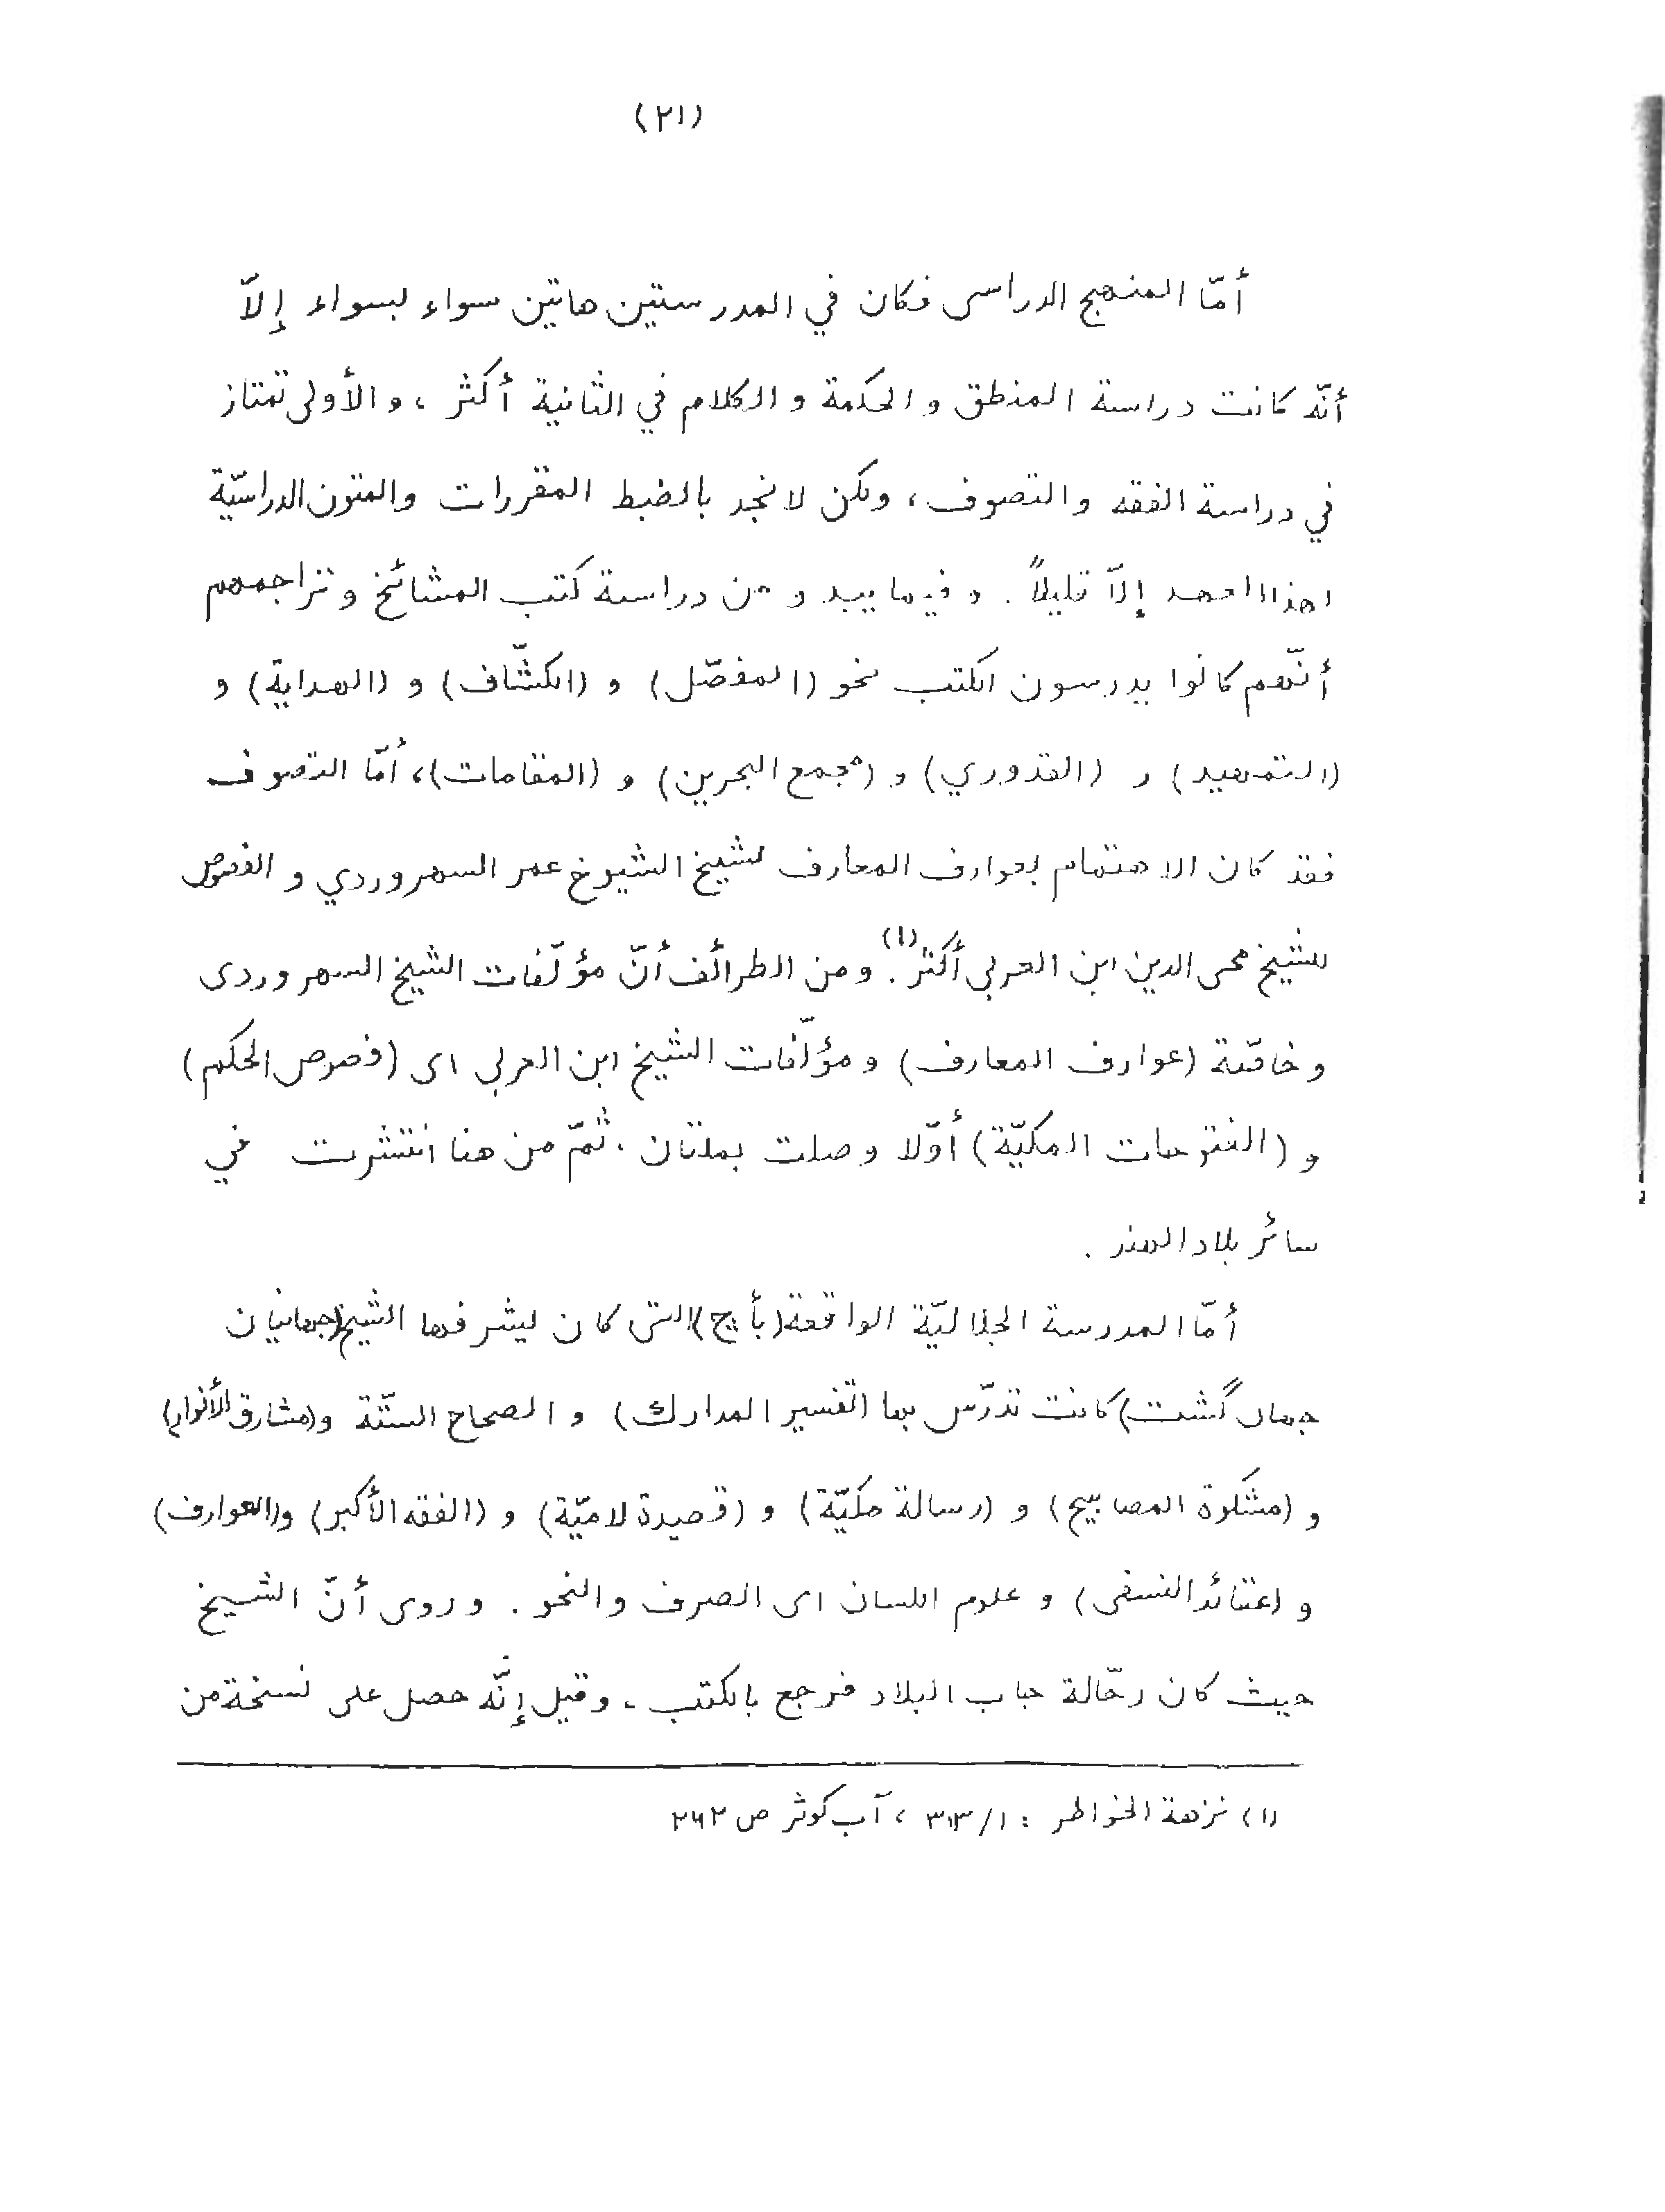 (٢١)
أمّا المنهج الدراسى فكان في المدرستين هاتين سواء بسواء إلاّ
أنّه كانت دراسة المنطق و الحكمة و الكلام في الثانية أكثر ، و الأولى تمتاز
في دراسة الفقه و التصوف ، ولكن لا نجد بالضبط المقررات والمتون الدراسيّة
لهذا العهد إلاّ قليلاً . و فيما يبدو من دراسة كتب المشائخ و تراجمهم
أنّهم كانوا يدرسون الكتب نحو (المفصّل) و (الكشّاف) و (الهداية) و
(التمهيد) و (القدوري) و (مجمع البحرين) و (المقامات) ، أمّا التصوف
فقد كان الاهتمام بعوارف المعارف لشيخ الشيوخ عمر السهروردي و الفصوص
للشيخ محى الدين ابن العربى أكثر (١) . ومن الطرائف أنّ مؤلّفات الشيخ السهروردى
و خاصّة (عوارف المعارف) و مؤلّفات الشيخ ابن العربى اى (فصوص الحكم)
و (الفتوحات المكيّة) أوّلا وصلت بملتان . ثمّ من هنا انتشرت في
سائر بلاد الهند .
أمّا المدرسة الجلاليّة الواقعة (بأچ) التى كان يشرفها الشيخ (جهانيان
جهاں گشت) كانت تدرّس بها (تفسير المدارك) و الصحاح الستّة و (مشارق الأنوار)
و (مشكوة المصابيح) و (رسالة مكيّة) و (قصيدة لاميّة) و (الفقه الأكبر) و (العوارف)
و (عقائد النسفى) و علوم اللسان اى الصرف والنحو . و روى أنّ الشيخ
حيث كان رحّالة جاب البلاد فرجع بالكتب . وقيل إنّه حصل على نسخة من
(١) نزهة الخواطر : ١/٣١٣ ، آب كوثر ص ٢٦٢